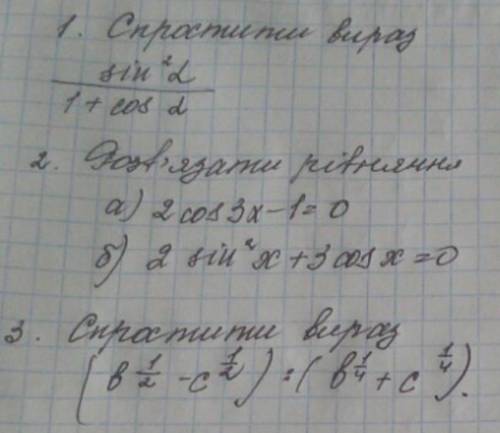 1. Спростити вираз
sin²α
1 + cos α
2. Розв'язати рівняння
а) 2cos3x-1=0
б) 2 sin²x+3cosx=0
3. Спростити вираз
(в^(1/2) - с^(1/2)) : (в^(1/4) + с^(1/4)).